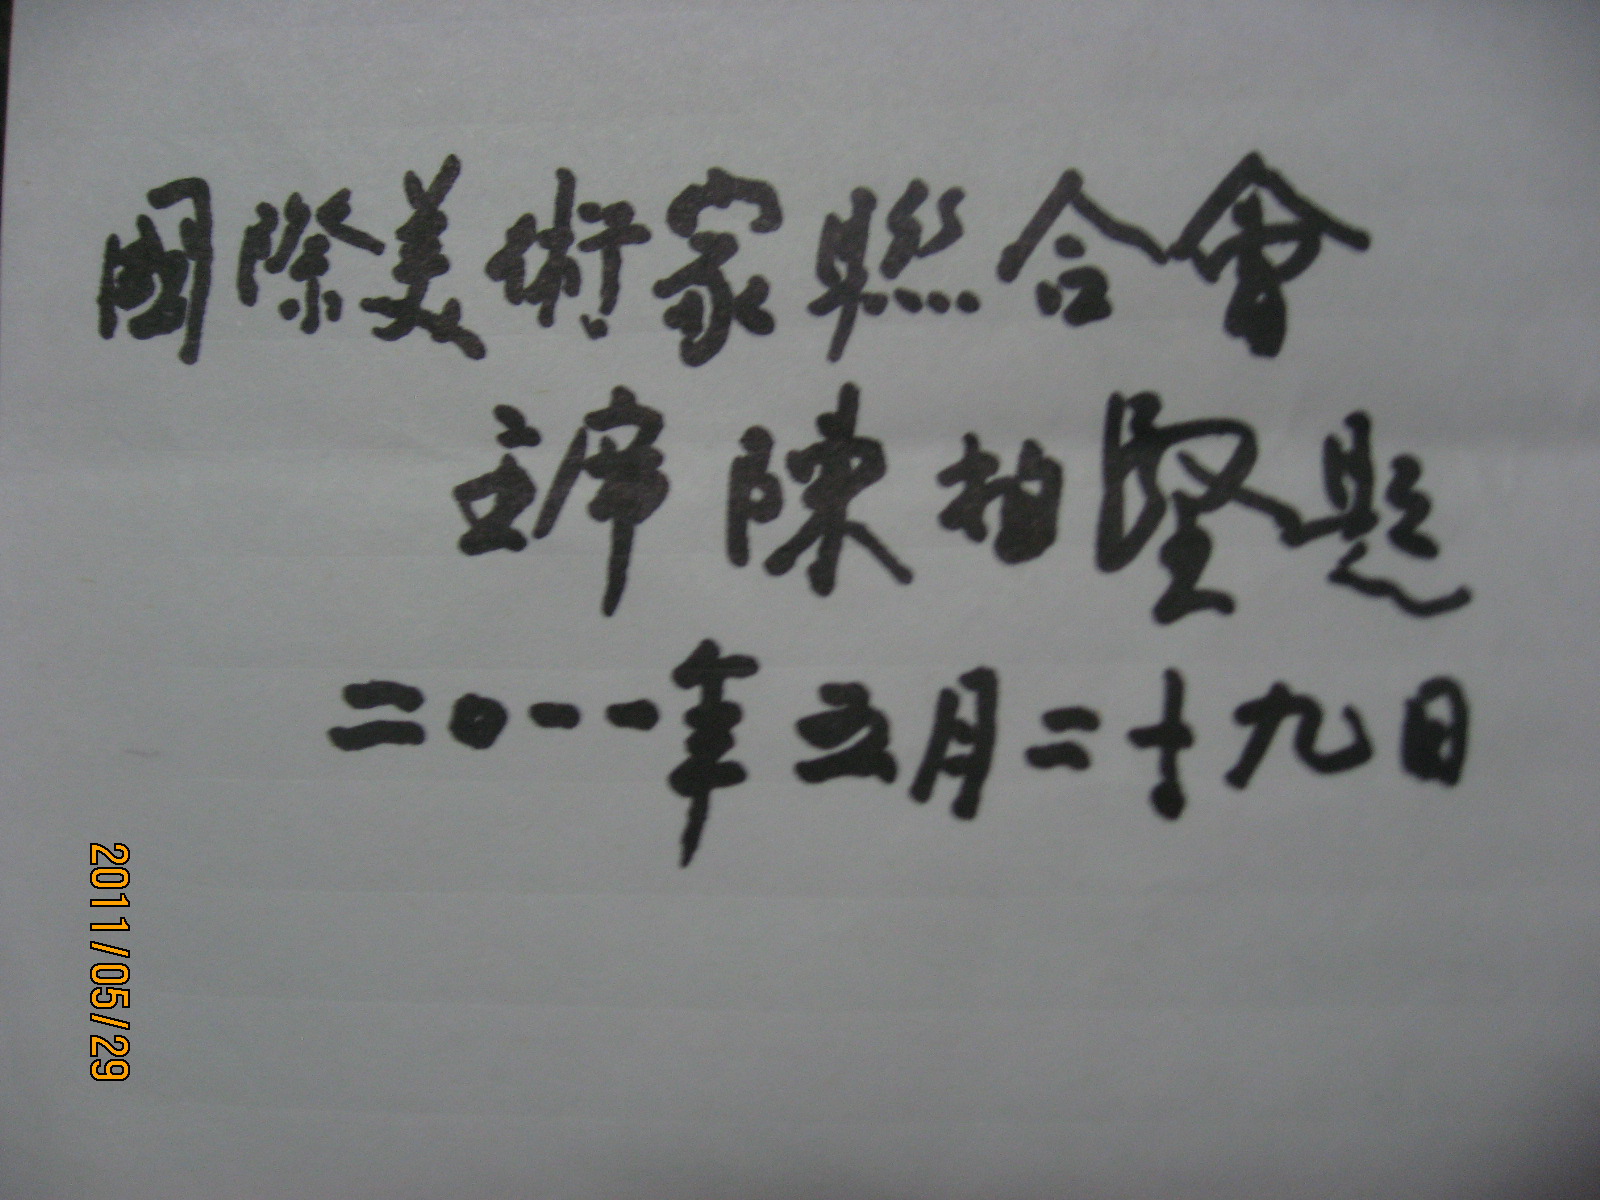 國際美術家聯合會
主席陳柏堅題
二〇一一年五月二十九日
2011/05/29